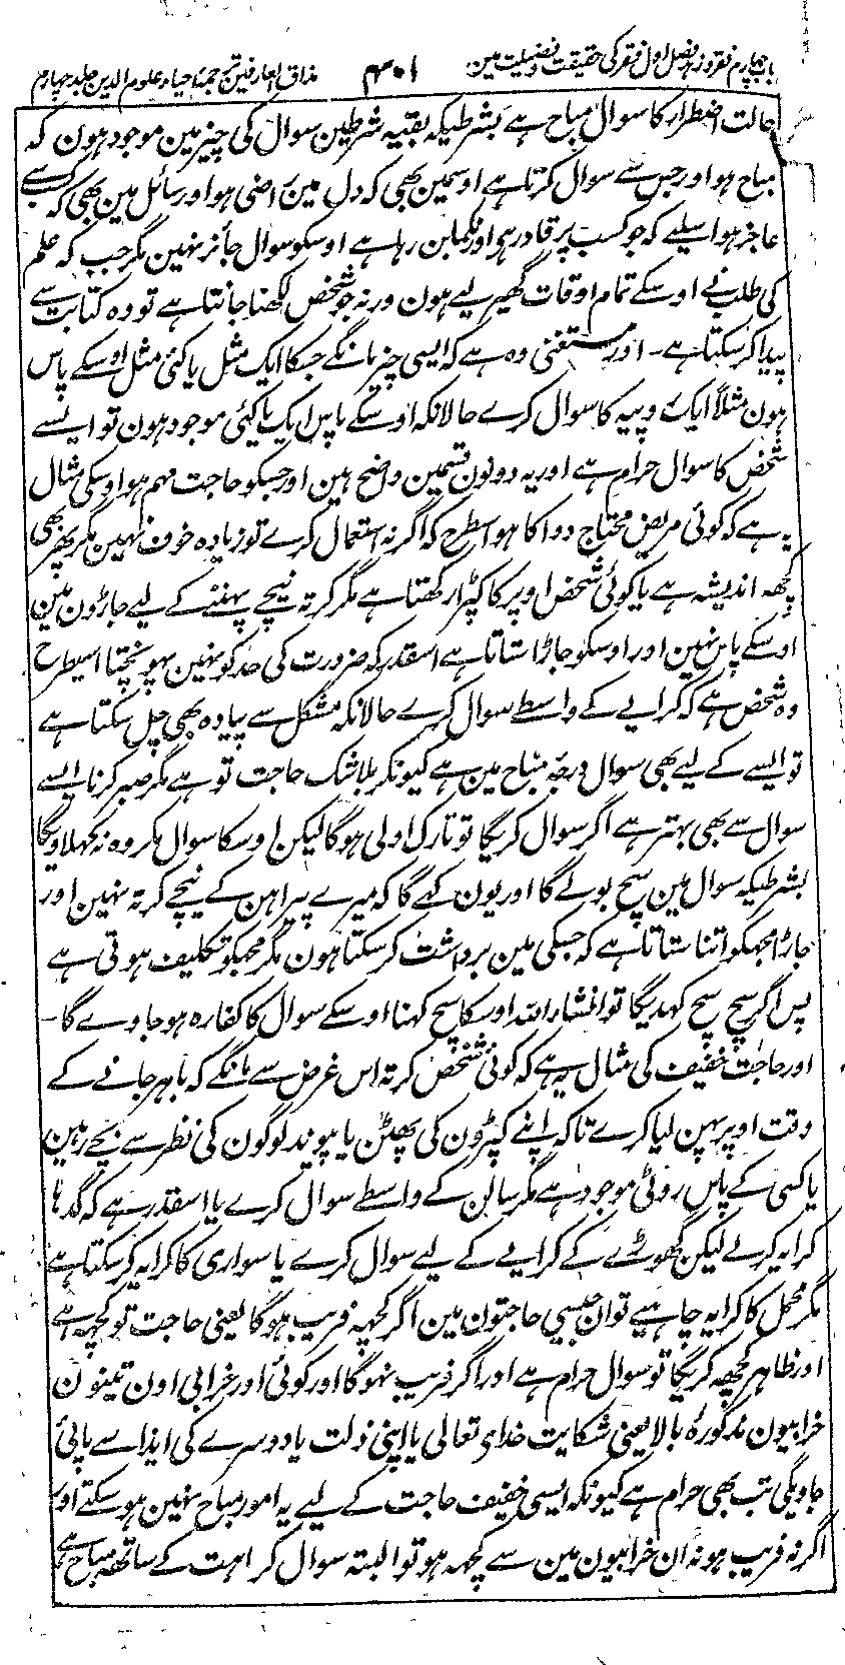 باب چہارم فقر و زہد فصل اول فقر کی حقیقت و فضیلت مین
۳۰۱
مذاق العارفین ترجمہ احیاء علوم الدین جلد چہارم
حالت اضطرار کا سوال مباح ہے بشرطیکہ بقیہ شرطین سوال کی چیز مین موجود ہون کہ
مباح ہو اور جس سے سوال کرتا ہے اوسمین بھی کہ دل مین راضی ہو اور سائل مین بھی کہ کسب سے
عاجز ہو اسلیے کہ جو کسب پر قادر ہو اور نکما بن رہا ہے اوسکو سوال جائز نہین مگر جب کہ علم
کی طلب نے اوسکے تمام اوقات گھیر لیے ہون ورنہ جو شخص لکھنا جانتا ہے تو وہ کتابت سے
پیدا کر سکتا ہے۔ اور مستغنی وہ ہے کہ ایسی چیز مانگے جسکا ایک مثل یا کئی مثل اوسکے پاس
ہون مثلاً ایک روپیہ کا سوال کرے حالانکہ اوسکے پاس ایک یا کئی موجود ہون تو ایسے
شخص کا سوال حرام ہے اور یہ دونون قسمین واضح ہین اور جسکو حاجت مہم ہو اوسکی مثال
یہ ہے کہ کوئی مریض محتاج دوا کا ہو اسطرح کہ اگر نہ استعمال کرے تو زیادہ خوف نہین مگر پھر بھی
کچھہ اندیشہ ہے یا کوئی شخص اوپر کا کپڑا رکھتا ہے مگر کرتہ نیچے پہننے کے لیے جاڑون مین
اوسکے پاس نہین اور اوسکو جاڑا ستاتا ہے اسقدر کہ ضرورت کی حد کو نہین پہونچتا اسیطرح
وہ شخص ہے کہ کرایے کے واسطے سوال کرے حالانکہ مشکل سے پیادہ بھی چل سکتا ہے
تو ایسے کے لیے بھی سوال درجہ مباح مین ہے کیونکر بلا شک حاجت تو ہے مگر صبر کرنا ایسے
سوال سے بھی بہتر ہے اگر سوال کریگا تو تارک اولی ہوگا لیکن اوسکا سوال مکروہ نہ کہلاویگا
بشرطیکہ سوال مین سچ بولے گا اور یون کہے گا کہ میرے پیراہن کے نیچے کرتہ نہین اور
جاڑا مجھکو اتنا ستاتا ہے کہ جسکی مین برداشت کر سکتا ہون مگر مجھکو تکلیف ہوتی ہے
پس اگر سچ سچ کہدیگا تو انشاء اللہ اوسکا سچ کہنا اوسکے سوال کا کفارہ ہو جاوے گا۔
اور حاجت خفیف کی مثال یہ ہے کہ کوئی شخص کرتہ اس غرض سے مانگے کہ باہر جانے کے
وقت اوپر پہن لیا کرے تاکہ اپنے کپڑون کی پھٹن یا پیوند لوگون کی نظر سے بچے رہین
یا کسی کے پاس روٹی موجود ہے مگر سالن کے واسطے سوال کرے یا اسقدر ہے کہ گدہا
کرایہ کرلے لیکن گھوڑے کے کرایے کے لیے سوال کرے یا سواری کا کرایہ کر سکتا ہے
مگر محمل کا کرایہ چاہیے تو ان جیسی حاجتون مین اگر کچھہ فریب ہوگا یعنی حاجت تو کچھہ ہے
اور ظاہر کچھہ کریگا تو سوال حرام ہے اور اگر فریب نہوگا اور کوئی اور خرابی اون تینون
خرابیون مذکورہ بالا یعنی شکایت خدای تعالی یا اپنی ذلت یا دوسرے کی ایذا سے پائی
جاویگی تب بھی حرام ہے کیونکہ ایسی خفیف حاجت کے لیے یہ امور مباح نہین ہو سکتے اور
اگر نہ فریب ہو نہ ان خرابیون مین سے کچھہ ہو تو البتہ سوال کراہت کے ساتھہ مباح ہے